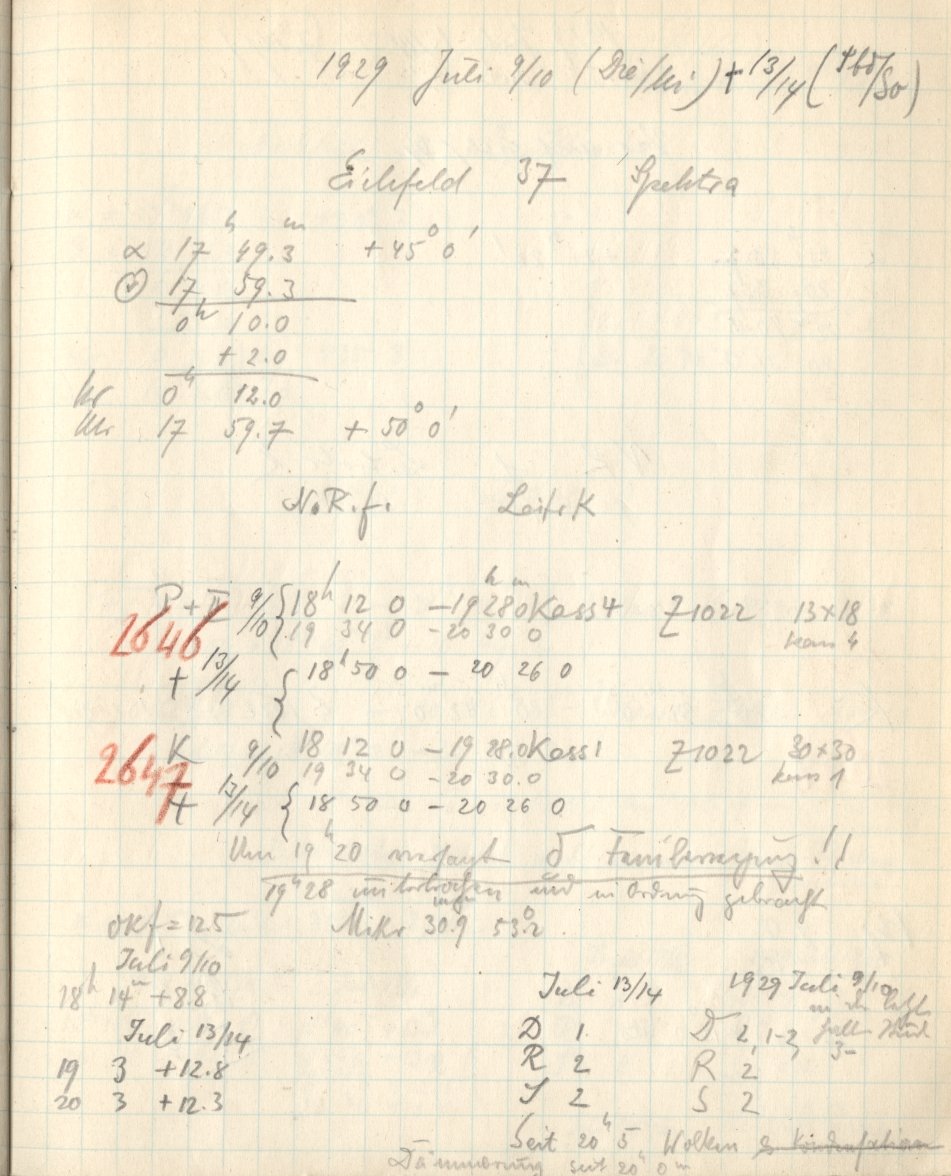 1929 Juli 9/10 (Die/Mi) + 13/14 (/So)
Eichfeld 37 Spektra
α 17 h 49.m3 +45° 0'
17 59.3
0h 10.0
+ 2.0
0h 12.0
17 59.7 + 50° 0'
N.R.f. Leitr. K
P + T 9/10 { 18h 12 0 – 19h 28m0 Kass 4 Z1022 13×18
2646 19 34 0 – 20 30 0 Kass 4
+ 13/14 { 18h 50 0 – 20 26 0
K 9/10 18 12 0 – 19 28.0 Kass 1 Z1022 30×30
2647 19 34 0 – 20 30.0 Kass 1
+ 13/14 { 18 50 0 – 20 26 0
Um 19h 20 versagt δ Feinbewegung!!
19h 28 unterbrochen und in Ordnung gebracht
Okf = 12.5 Mikr 30.9 53.2
Juli 9/10
18h 14m +8.8
Juli 13/14 1929 Juli 9/10
Juli 13/14
D 1 D 2, 1-2, 3-
19 3 +12.8 R 2 R 2
20 3 +12.3 S 2 S 2
Seit 20h 5 Wolken
Dämmerung seit 20h 0m